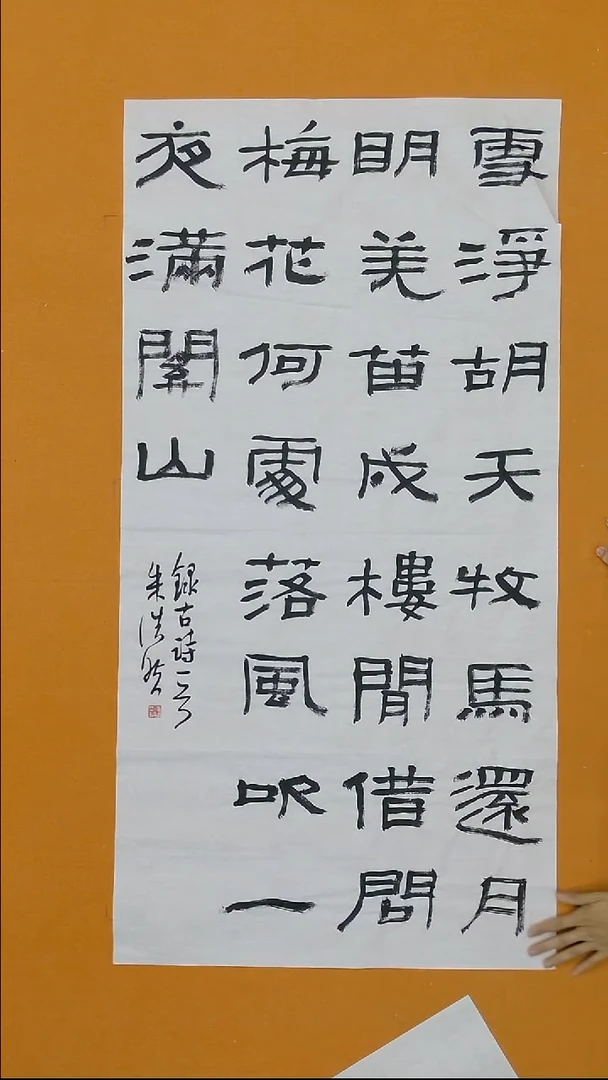 雪淨胡天牧馬還月
眀羌笛戍樓閒借問
梅花何處落風吹一
夜滿關山
錄古詩一首
朱